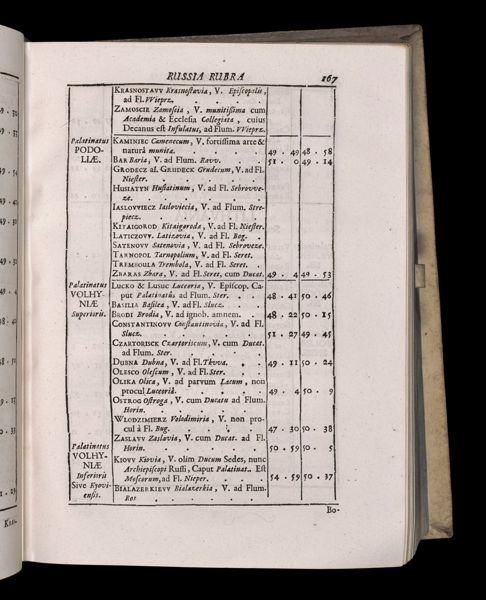 RUSSIA RUBRA 167
KRASNOSTAVV Krasnostavia, V. Episcopalis,
ad Fl. VVieprz.
ZAMOSCIE Zamoscia, V. munitissima cum
Academia & Ecclesia Collegiata, cuius
Decanus est Infulatus, ad Flum. VVieprz.
Palatinatus KAMINIEC Camenecum, V. fortissima arce &
PODO- naturâ munita. 49 . 49 48 . 58
LIÆ. BAR Baria, V. ad Flum. Ravv. 51 . 0 49 . 14
GRODECZ al. GRUDECK Grudecum, V. ad Fl.
Niester.
HUSIATYN Husiatinum, V. ad Fl. Sebrovve-
za.
IASLOVVIECZ Iasloviecia, V. ad Flum. Stre-
piecz.
KITAIGOROD Kitaigoroda, V. ad Fl. Niester.
LATICZOVV. Latizovia, V. ad Fl. Bog.
SATENOVV Satenovia, V. ad Fl. Sebroveza.
TARNOPOL Tarnopolium, V. ad Fl. Seret.
TREMBOULA Trembola, V. ad Fl. Seret.
ZBARAS Zbara, V. ad Fl. Seret, cum Ducat. 49 . 4 49 . 53
Palatinatus LUCKO & LUSUC Lucoria, V. Episcop. Ca-
VOLHY- put Palatinatûs ad Flum. Ster. 48 . 41 50 . 46
NIÆ BASILIA Basilea, V. ad Fl. Slucz.
Superioris. BRODI Brodia, V. ad ignob. amnem. 48 . 22 50 . 15
CONSTANTINOVV Constantinovia, V. ad Fl.
Slucz. 51 . 27 49 . 45
CZARTORISCK Czartoriscum, V. cum Ducat.
ad Flum. Ster.
DUBNA Dubna, V. ad Fl. Tkvva. 49 . 11 50 . 24
OLESCO Olescum, V. ad Fl. Ster.
OLIKA Olica, V. ad parvum Lacum, non
procul Luceoriâ. 49 . 4 50 . 9
OSTROG Ostroga, V. cum Ducatu ad Flum.
Horin.
WLODZIMIERZ Volodimiria, V. non pro-
cul à Fl. Bug. 47 . 30 50 . 38
ZASLAVV Zaslavia, V. cum Ducat. ad Fl.
Palatinatus Horin. 50 . 59 50 . 5
VOLHY- KIOVV Kiovia, V. olim Ducum Sedes, nunc
NIÆ Archiepiscopi Russi, Caput Palatinat.. Est
Inferioris Moscorum, ad Fl. Nieper. 54 . 59 50 . 37
Sive Kyovi- BIALAZERKIEVV Bialazerkia, V. ad Flum.
ensis. Ros
Bo-